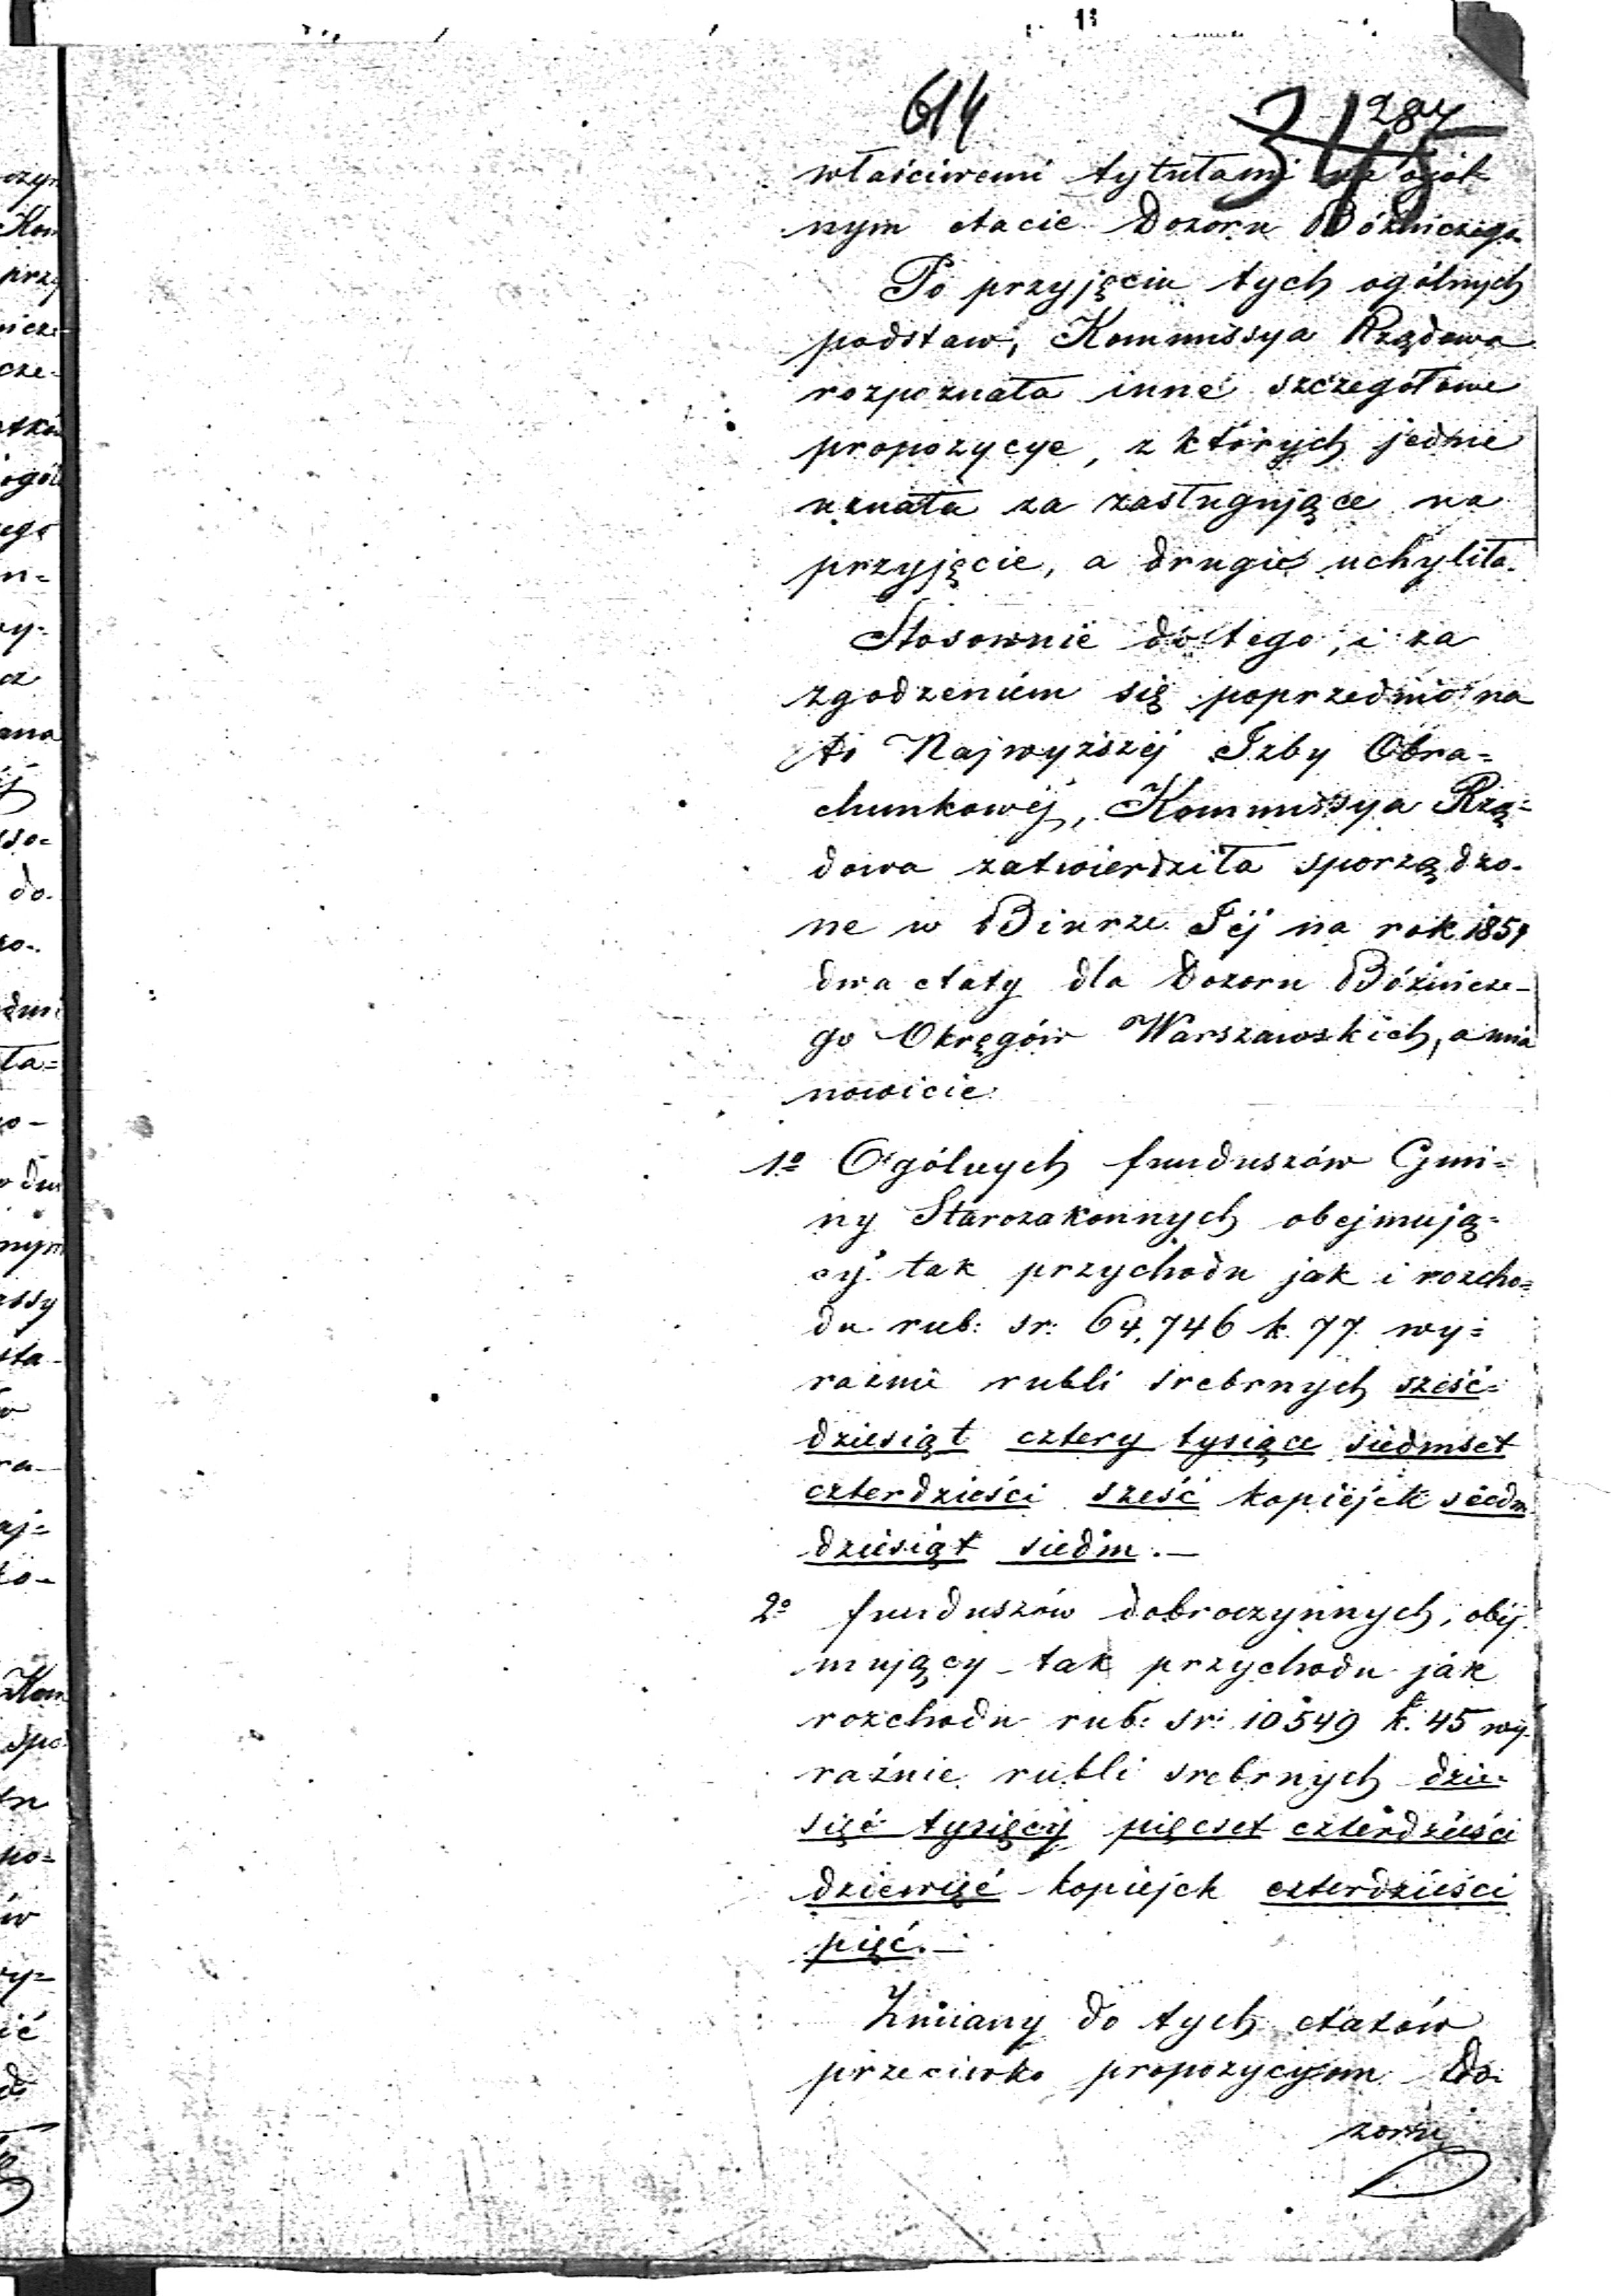 614 287
315
właściwemi tytułami na ogól
nym etacie Dozoru Bóżniczego
Po przyjęciu tych ogólnych
podstaw, Kommissya Rządowa
rozpoznała inne szczegółowe
propozycye, z których jedne
uznała za zasługujące na
przyjęcie, a drugie uchyliła.
Stosownie do tego, i za
zgodzeniem się poprzednio na
to Najwyższéj Izby Obra=
chunkowéj, Kommissya Rzą=
dowa zatwierdziła sporządzo-
ne w Biurze Jéj na rok 1859
dwa etaty dla Dozoru Bóżnicze-
go Okręgów Warszawskich, a mia
nowicie:
1º Ogólnych funduszów Gmi=
ny Starozakonnych obejmują=
cy tak przychodu jak i rozcho=
du rub: sr: 64,746 k. 77 wy=
raźnie rubli srebrnych sześć=
dziesiąt cztery tysiące siedmset
czterdzieści sześć kopiejek siedm
dziesiąt siedm.—
2º funduszów dobroczynnych, obej
mujący tak przychodu jak
rozchodu rub: sr: 10549 k. 45 wy-
raźnie rubli srebrnych dzie-
sięć tysięcy pięcset czterdzieści
dziewięć kopiejek czterdzieści
pięć.—
Zmiany do tych etatów
przeciwko propozycyom Do-
zoru